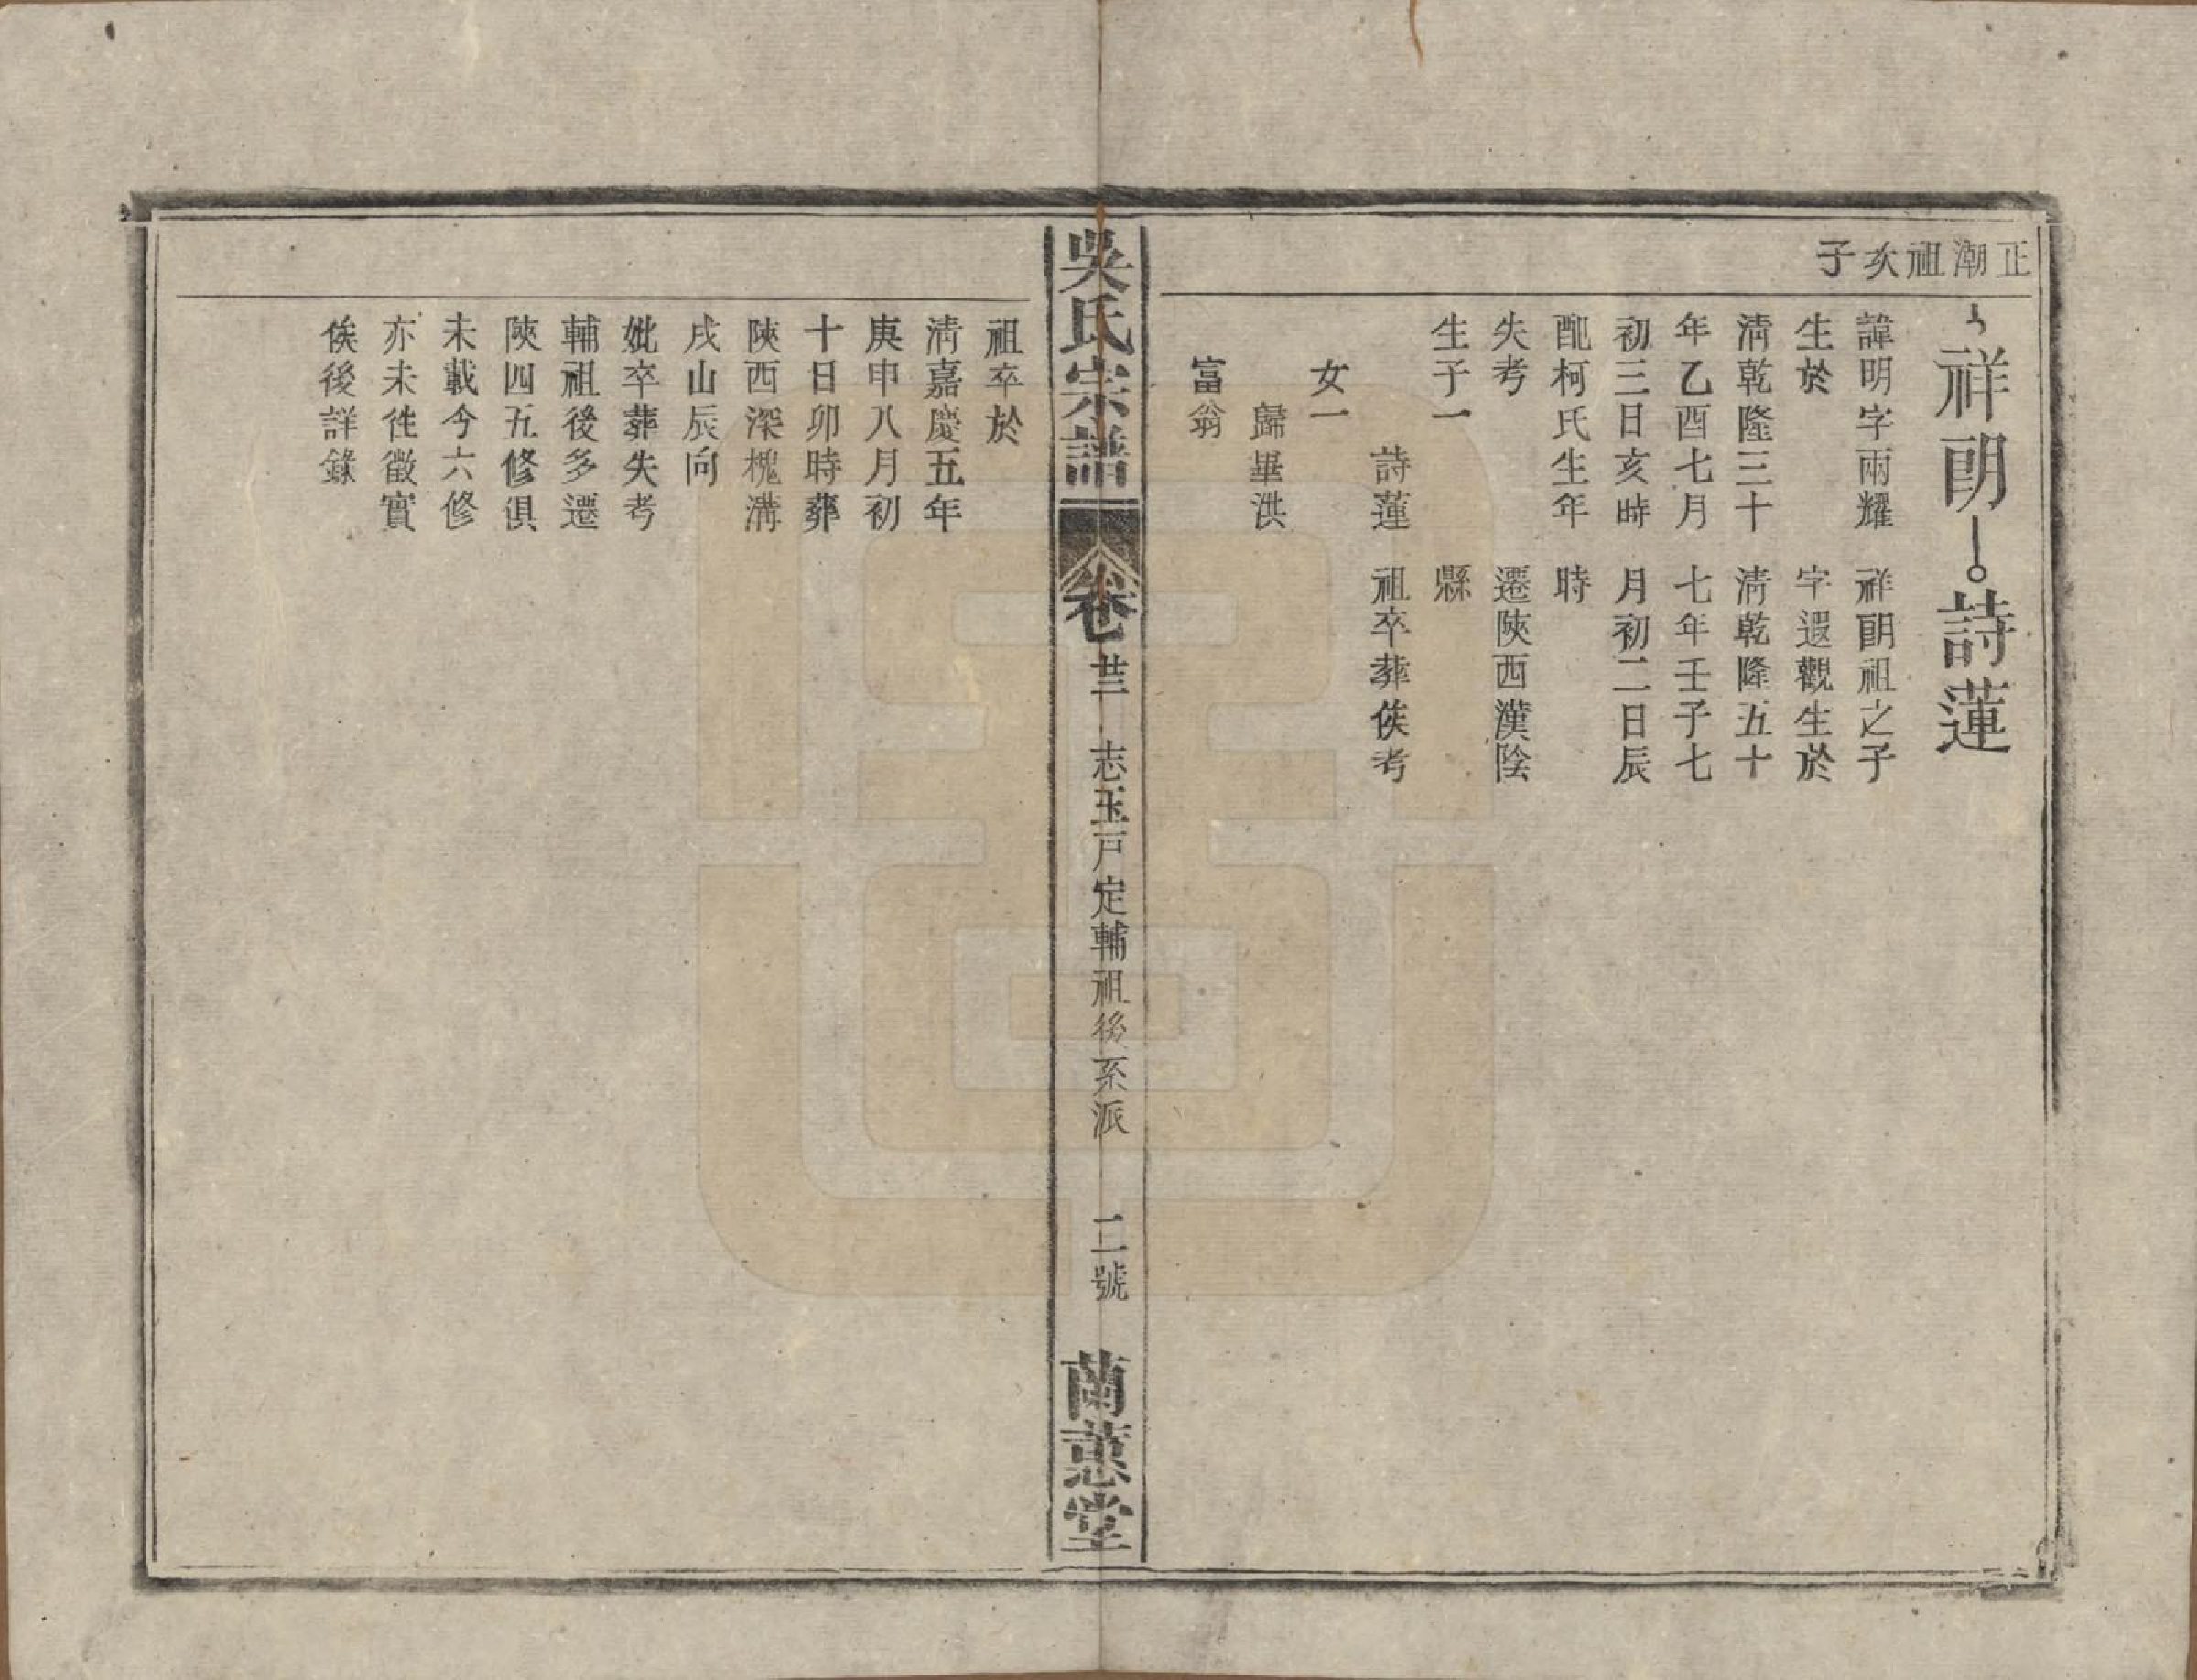 正潮祖次子
祥朗
詩蓮
諱明字兩耀
生於
淸乾隆三十
年乙酉七月
初三日亥時
配柯氏生年
失考
生子一
詩蓮
女一
歸畢洪
富翁
祥朗祖之子
字遐觀生於
淸乾隆五十
七年壬子七
月初二日辰
時
遷陝西漢陰
縣
祖卒葬俟考
吳氏宗譜
卷廿三
志玉戸定輔祖後系派
二號
蘭蕙堂
祖卒於
淸嘉慶五年
庚申八月初
十日卯時葬
陝西深槐溝
戌山辰向
妣卒葬失考
輔祖後多遷
陝四五修俱
未載今六修
亦未徃徵實
俟後詳錄